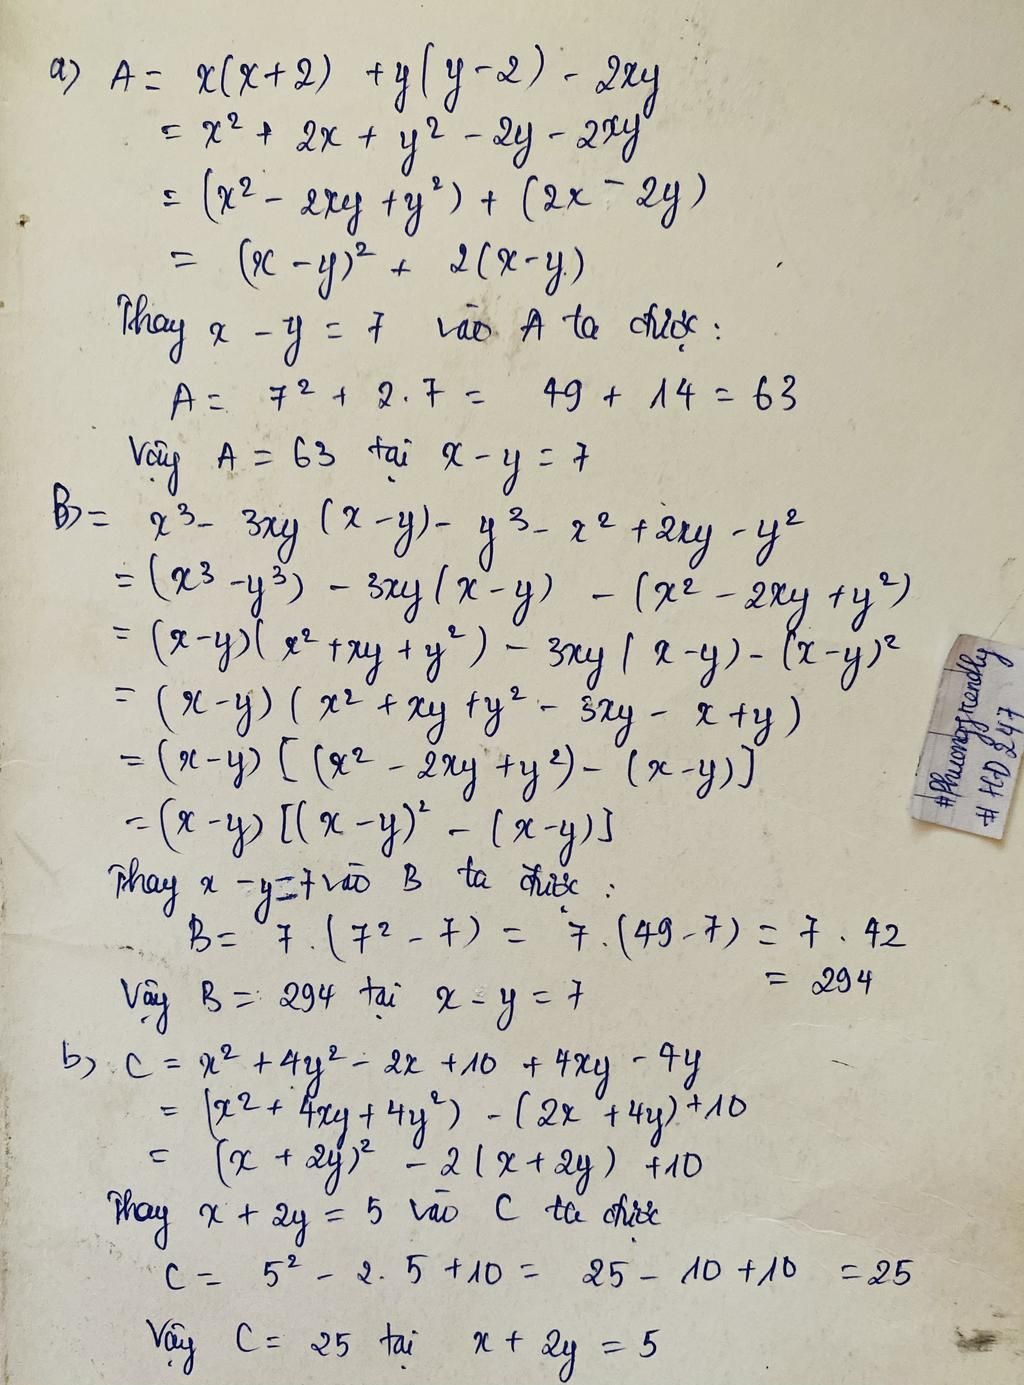 a) A = x(x+2) + y(y-2) - 2xy
= x² + 2x + y² - 2y - 2xy
= (x² - 2xy + y²) + (2x - 2y)
= (x - y)² + 2(x-y)
Thay x - y = 7 vào A ta được:
A = 7² + 2.7 = 49 + 14 = 63
Vậy A = 63 tại x - y = 7
B) = x³ - 3xy (x - y) - y³ - x² + 2xy - y²
= (x³ - y³) - 3xy (x - y) - (x² - 2xy + y²)
= (x-y)( x² + xy + y² ) - 3xy ( x - y) - (x-y)²
= (x-y) ( x² + xy + y² - 3xy - x + y )
= (x-y) [ (x² - 2xy + y²) - (x-y) ]
= (x-y) [(x-y)² - (x-y)]
Thay x - y = 7 vào B ta được :
B = 7 . (7² - 7) = 7 . (49 - 7) = 7 . 42
= 294
Vậy B = 294 tại x - y = 7
b) C = x² + 4y² - 2x + 10 + 4xy - 4y
= (x² + 4xy + 4y²) - (2x + 4y) + 10
= (x + 2y)² - 2(x + 2y) + 10
Thay x + 2y = 5 vào C ta được
C = 5² - 2.5 + 10 = 25 - 10 + 10 = 25
Vậy C = 25 tại x + 2y = 5
# HD 247